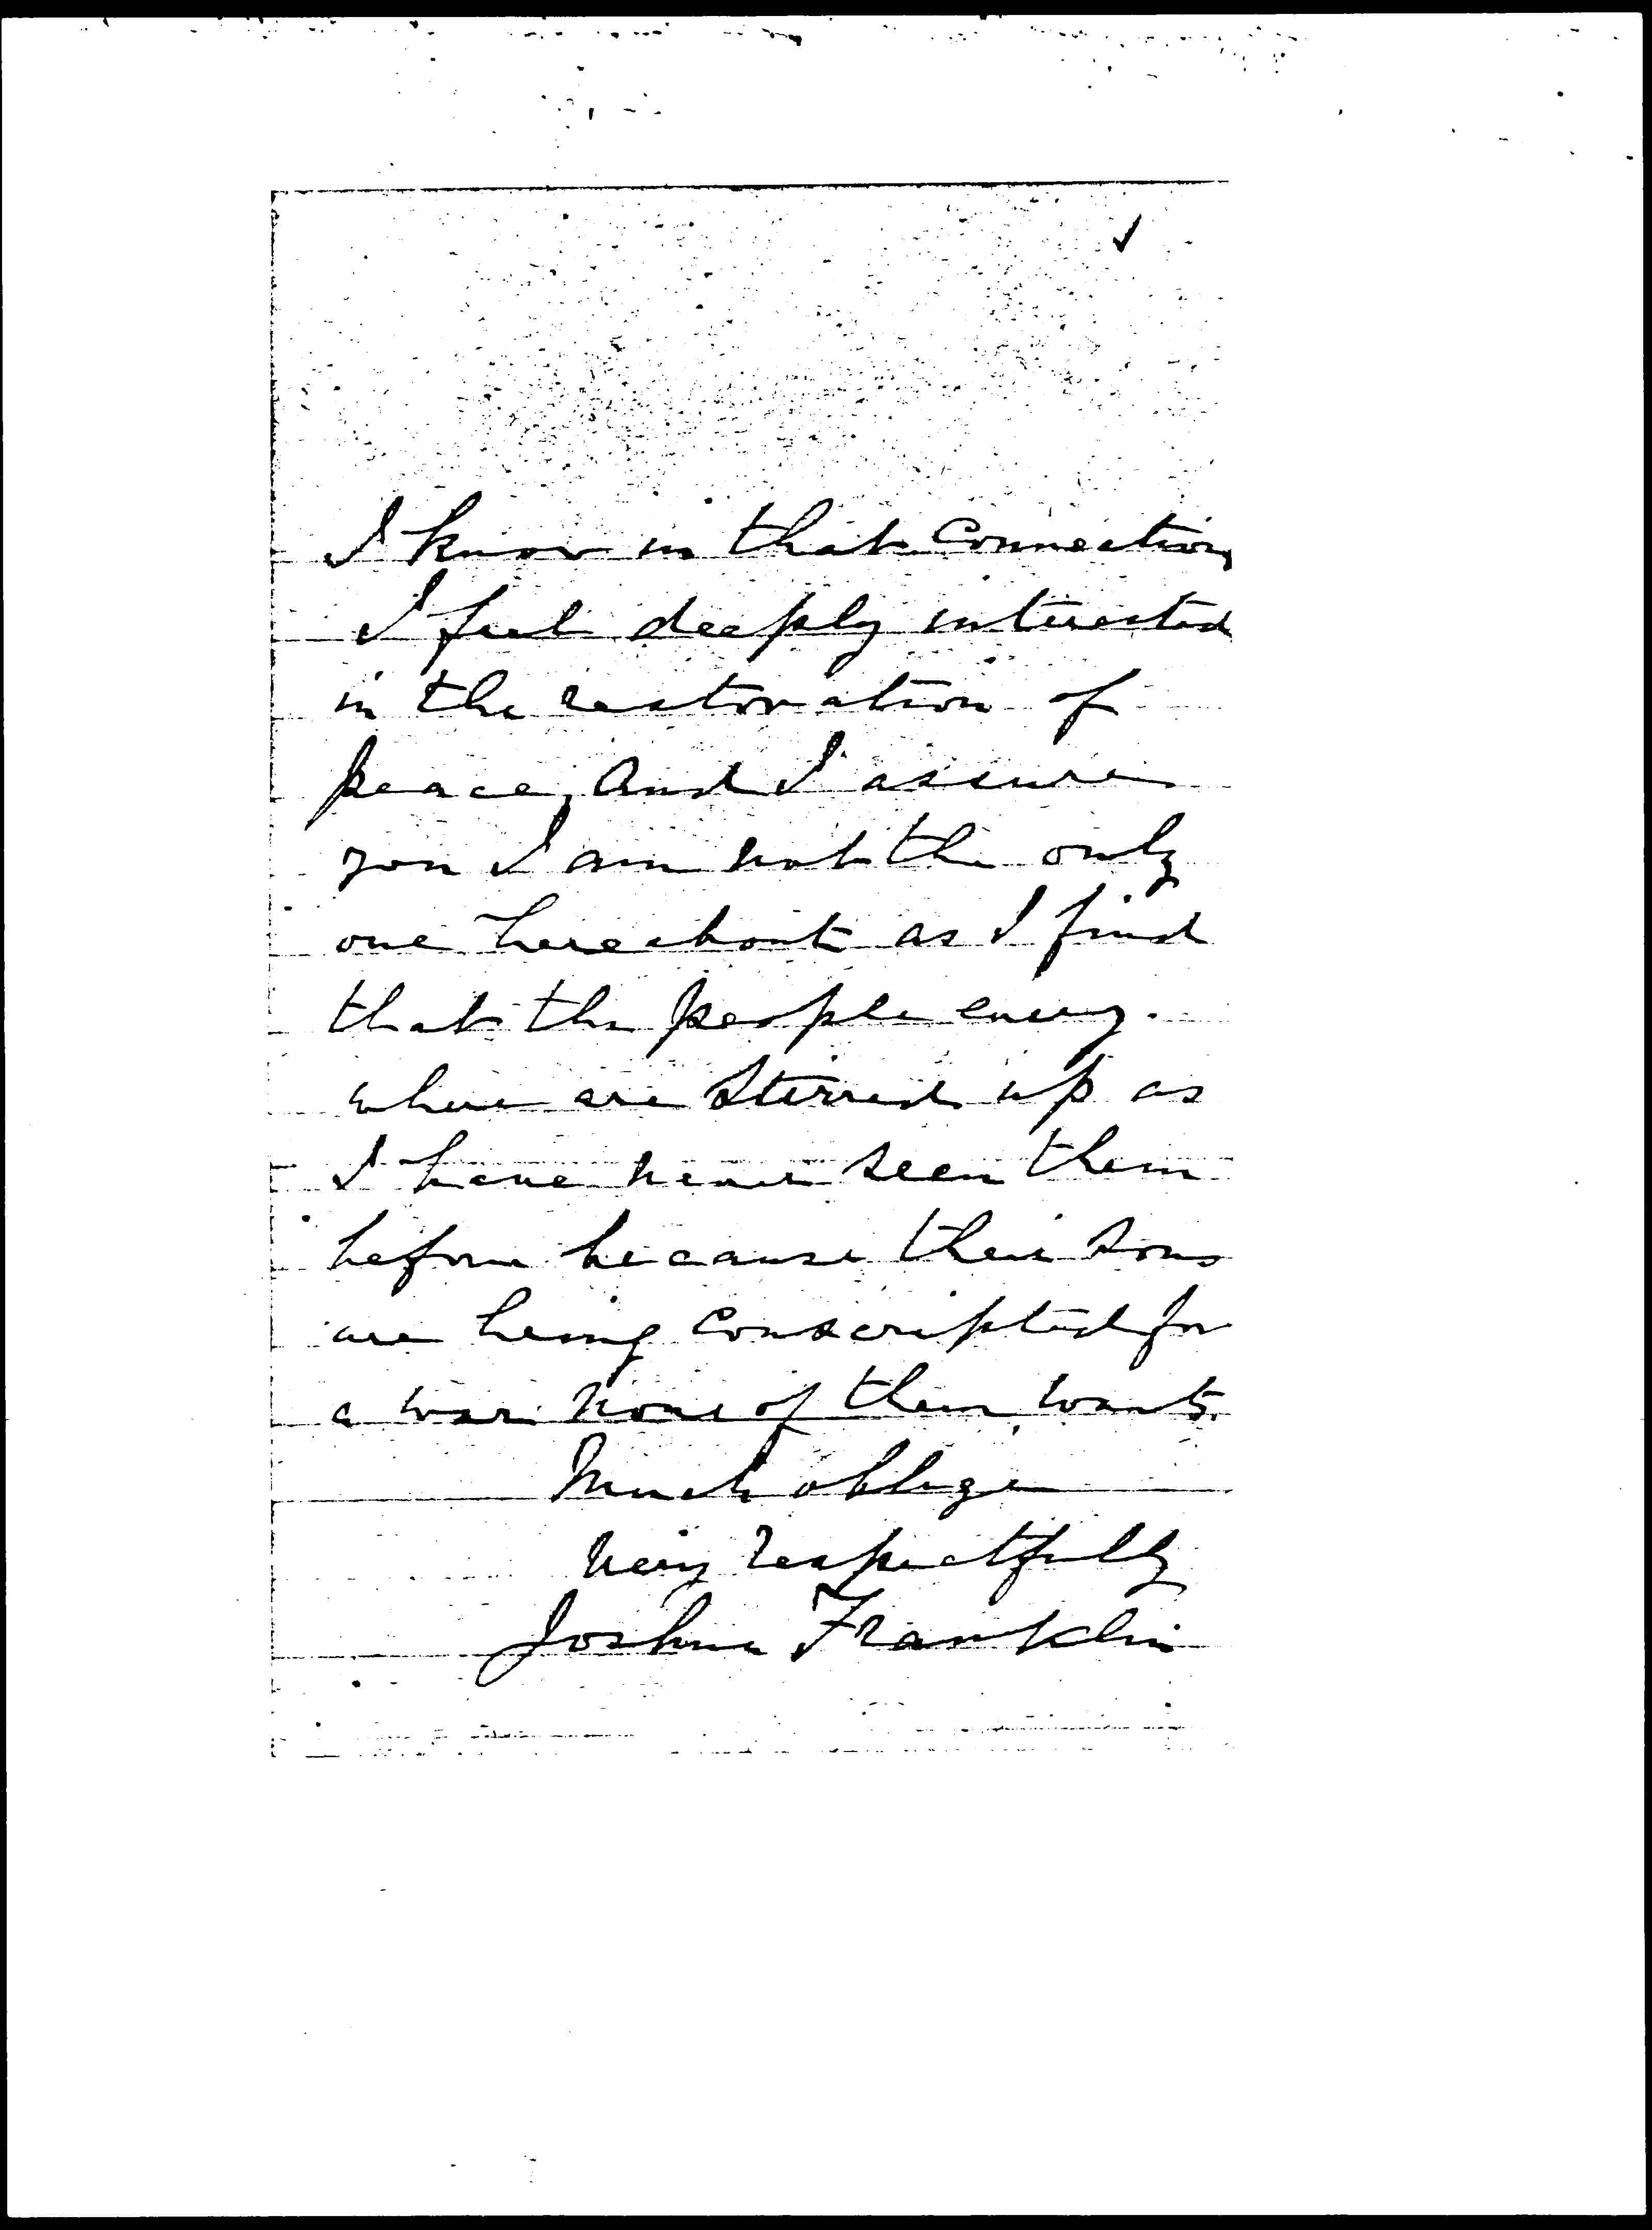 I know in that connection
I feel deeply interested
in the restoration of
peace, And I assure
you I am not the only
one hereabout as I find
that the people every-
where are stirred up as
I have never seen them
before because their sons
are being conscripted for
a war none of them wants.
Much oblige
Very respectfully
Joshua Franklin